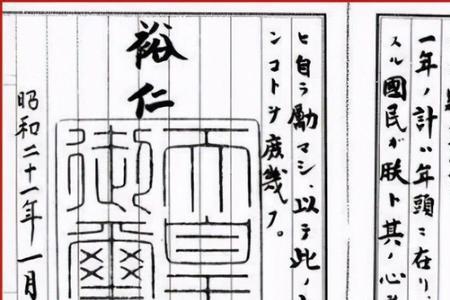 一年ノ計ハ年頭ニ在リ、
スル國民ガ朕ト其ノ心
ヒ自ラ勵マシ、以テ此ノ
ンコトヲ庶幾フ。
裕仁
天皇
御璽
昭和二十一年一月